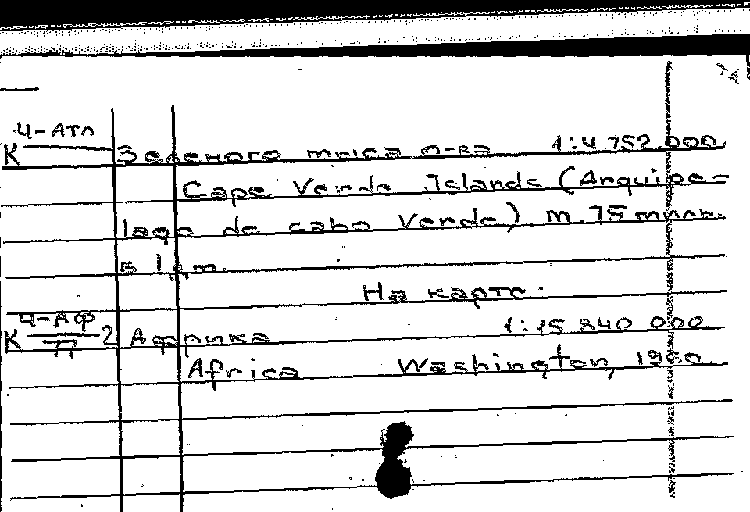 Ч-АТЛ
К Зеленого мыса о-ва 1:4.752.000
Cape Verde Islands (Arquipe-
lago de cabo Verde) m. 75 мил.
в 1 дм.
На карте:
Ч-АФ
К П 2 Африка 1:15 840 000
Africa Washington, 1960